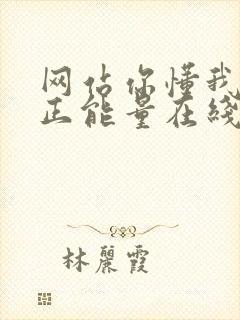 网站你懂我
正能量在线
林麗霞